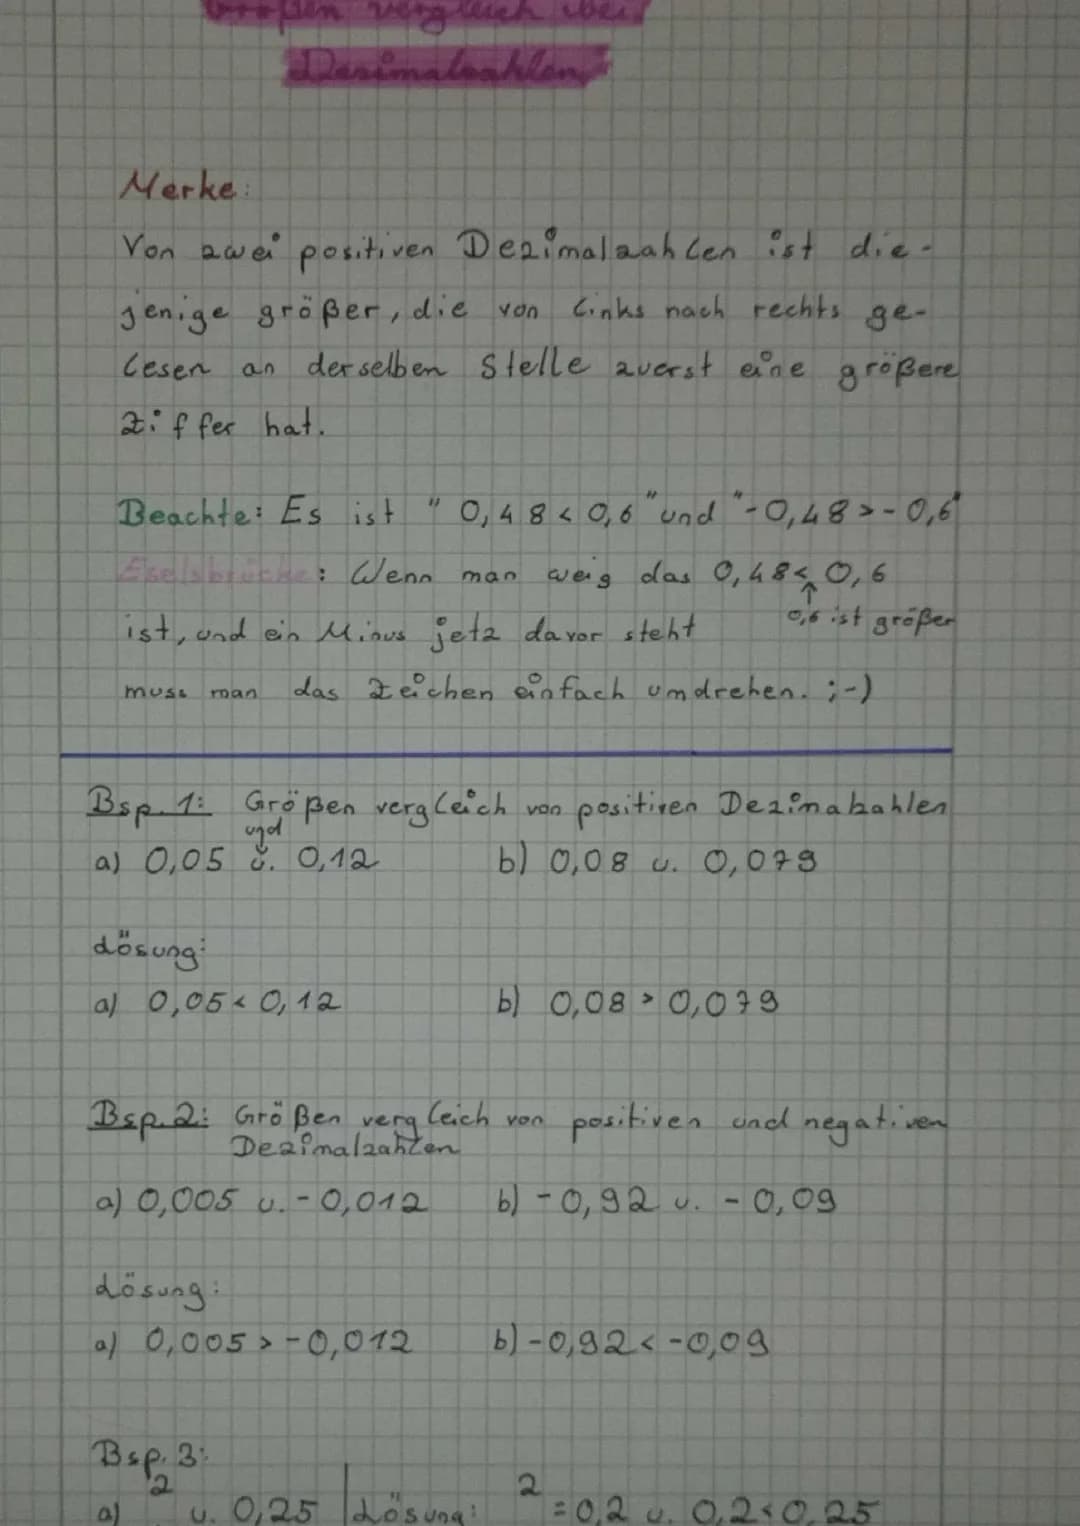 Größen vergleich bei
Dezimalzahlen
Merke:
Von zwei positiven Dezimalzahlen ist die-
jenige größer, die von links nach rechts ge-
lesen an derselben Stelle zuerst eine größere
Ziffer hat.
Beachte: Es ist "0,48 < 0,6" und "-0,48 > -0,6"
Eselsbrücke: Wenn man weig das 0,48 < 0,6
↑
0,6 ist größer
ist, und ein Minus jetz davor steht
muss man das Zeichen einfach umdrehen. ;-)
Bsp. 1: Größen vergleich von positiven Dezimalzahlen
und
a) 0,05 u. 0,12 b) 0,08 u. 0,079
Lösung:
a) 0,05 < 0,12 b) 0,08 > 0,079
Bsp. 2: Größen vergleich von positiven und negativen
Dezimalzahlen
a) 0,005 u. -0,012 b) -0,92 u. -0,09
Lösung:
a) 0,005 > -0,012 b) -0,92 < -0,09
Bsp. 3:
a) 2 u. 0,25 | Lösung: 2 = 0,2 u. 0,2 < 0,25